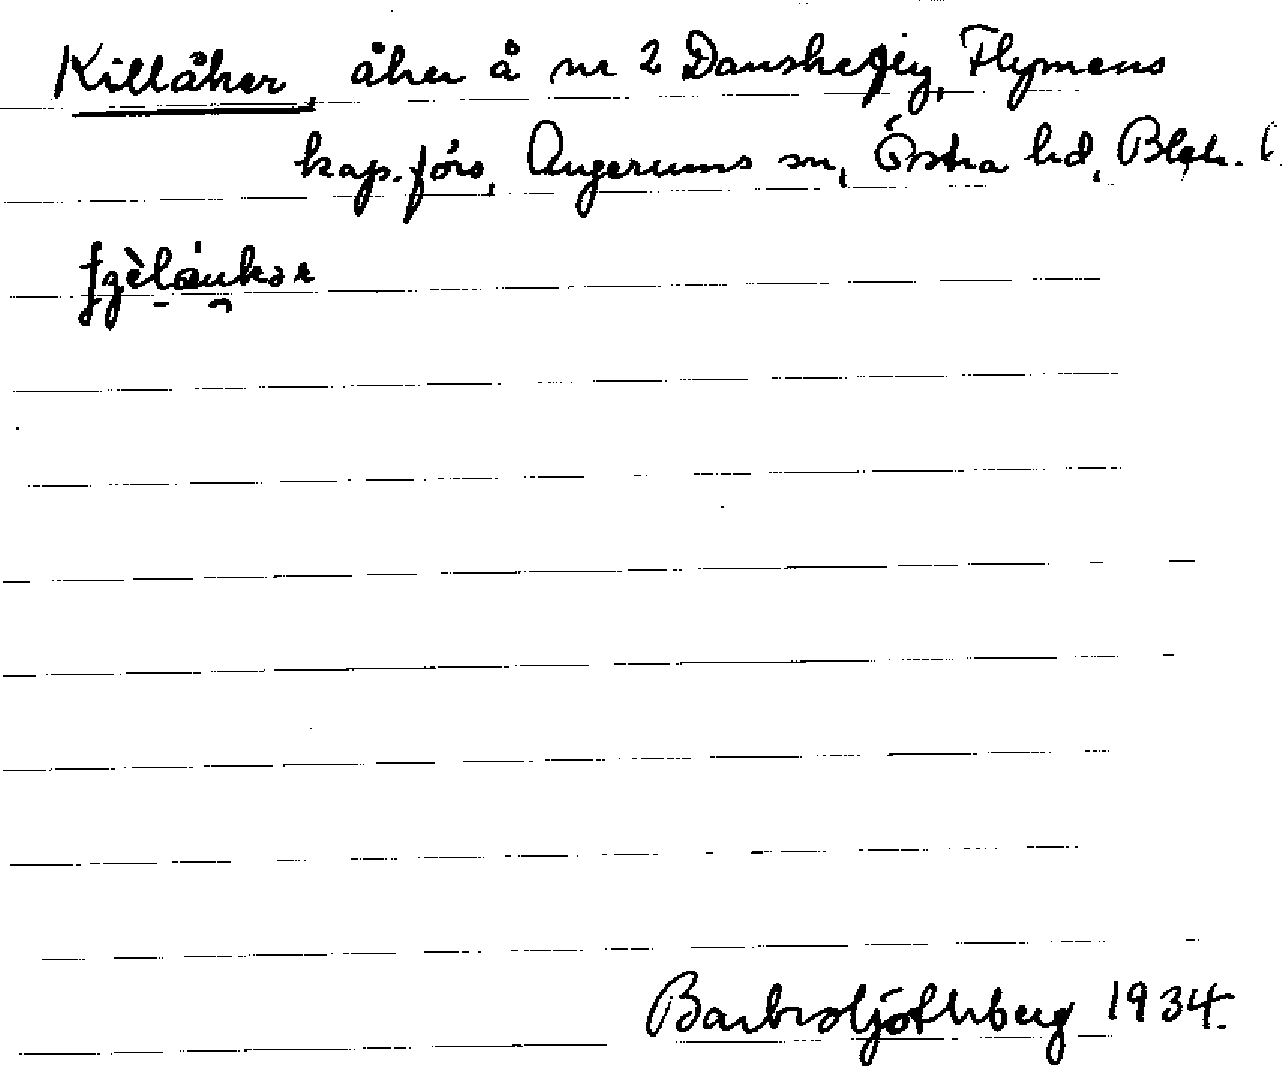 Killåker, åker å nr 2 Danskefly, Flymens
kap.förs, Augerums sn, Östra hd, Blek. l.
Barbro Ljöthberg 1934.